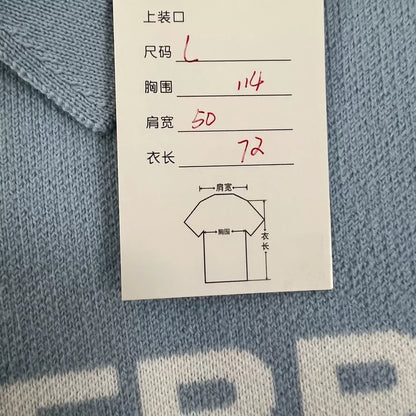 上装口
尺码 L
胸围 114
肩宽 50
衣长 72
肩宽
胸围
衣长